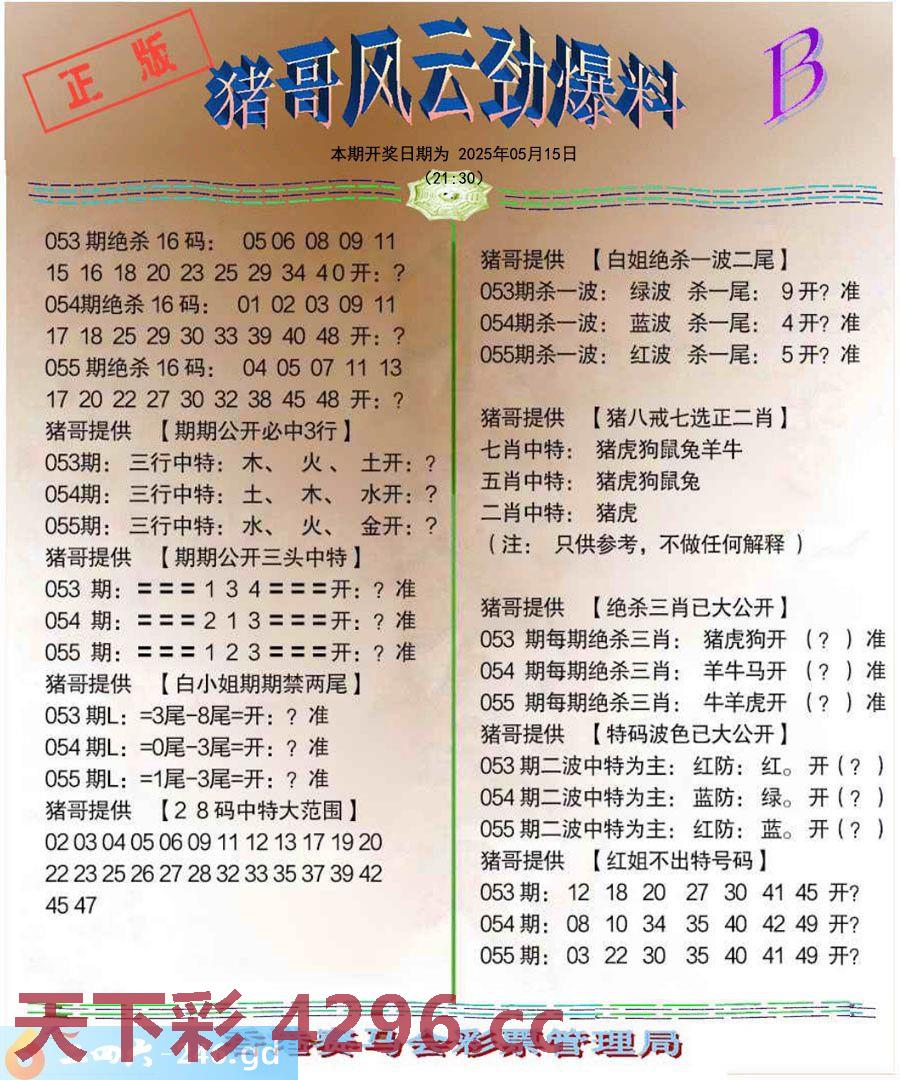 正版
猪哥风云劲爆料
B
本期开奖日期为 2025年05月15日
（21:30）
053 期绝杀 16 码： 05 06 08 09 11
15 16 18 20 23 25 29 34 40 开：?
054期绝杀 16 码： 01 02 03 09 11
17 18 25 29 30 33 39 40 48 开：?
055 期绝杀 16 码： 04 05 07 11 13
17 20 22 27 30 32 38 45 48 开：?
猪哥提供 【期期公开必中3行】
053期：三行中特：木、 火 、 土开：?
054期：三行中特：土、 木、 水开：?
055期：三行中特：水、 火、 金开：?
猪哥提供 【期期公开三头中特】
053 期：＝＝＝ 1 3 4 ＝＝＝开：? 准
054 期：＝＝＝ 2 1 3 ＝＝＝开：? 准
055 期：＝＝＝ 1 2 3 ＝＝＝开：? 准
猪哥提供 【白小姐期期禁两尾】
053 期L：=3尾-8尾=开：? 准
054 期L：=0尾-3尾=开：? 准
055 期L：=1尾-3尾=开：? 准
猪哥提供 【２８码中特大范围】
02 03 04 05 06 09 11 12 13 17 19 20
22 23 25 26 27 28 32 33 35 37 39 42
45 47
猪哥提供 【白姐绝杀一波二尾】
053期杀一波： 绿波 杀一尾： 9 开? 准
054期杀一波： 蓝波 杀一尾： 4 开? 准
055期杀一波： 红波 杀一尾： 5 开? 准
猪哥提供 【猪八戒七选正二肖】
七肖中特： 猪虎狗鼠兔羊牛
五肖中特： 猪虎狗鼠兔
二肖中特： 猪虎
（注： 只供参考，不做任何解释 ）
猪哥提供 【绝杀三肖已大公开】
053 期每期绝杀三肖： 猪虎狗开 （? ）准
054 期每期绝杀三肖： 羊牛马开 （? ）准
055 期每期绝杀三肖： 牛羊虎开 （? ）准
猪哥提供 【特码波色已大公开】
053 期二波中特为主： 红防： 红。 开（? ）
054 期二波中特为主： 蓝防： 绿。 开（? ）
055 期二波中特为主： 红防： 蓝。 开（? ）
猪哥提供 【红姐不出特号码】
053 期： 12 18 20 27 30 41 45 开?
054 期： 08 10 34 35 40 42 49 开?
055 期： 03 22 30 35 40 41 49 开?
天下彩 4296.cc
马会彩票管理局